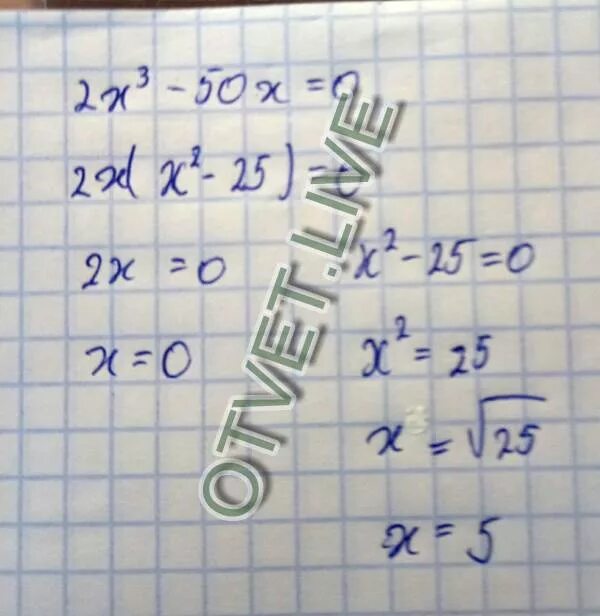 2x³ - 50x = 0
2x( x² - 25 ) = 0
2x = 0
x² - 25 = 0
x = 0
x² = 25
x = √25
x = 5
OTVET.LIVE